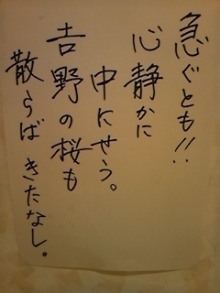 急ぐとも!!
心静かに
中にせう。
吉野の桜も
散らば きたなし。